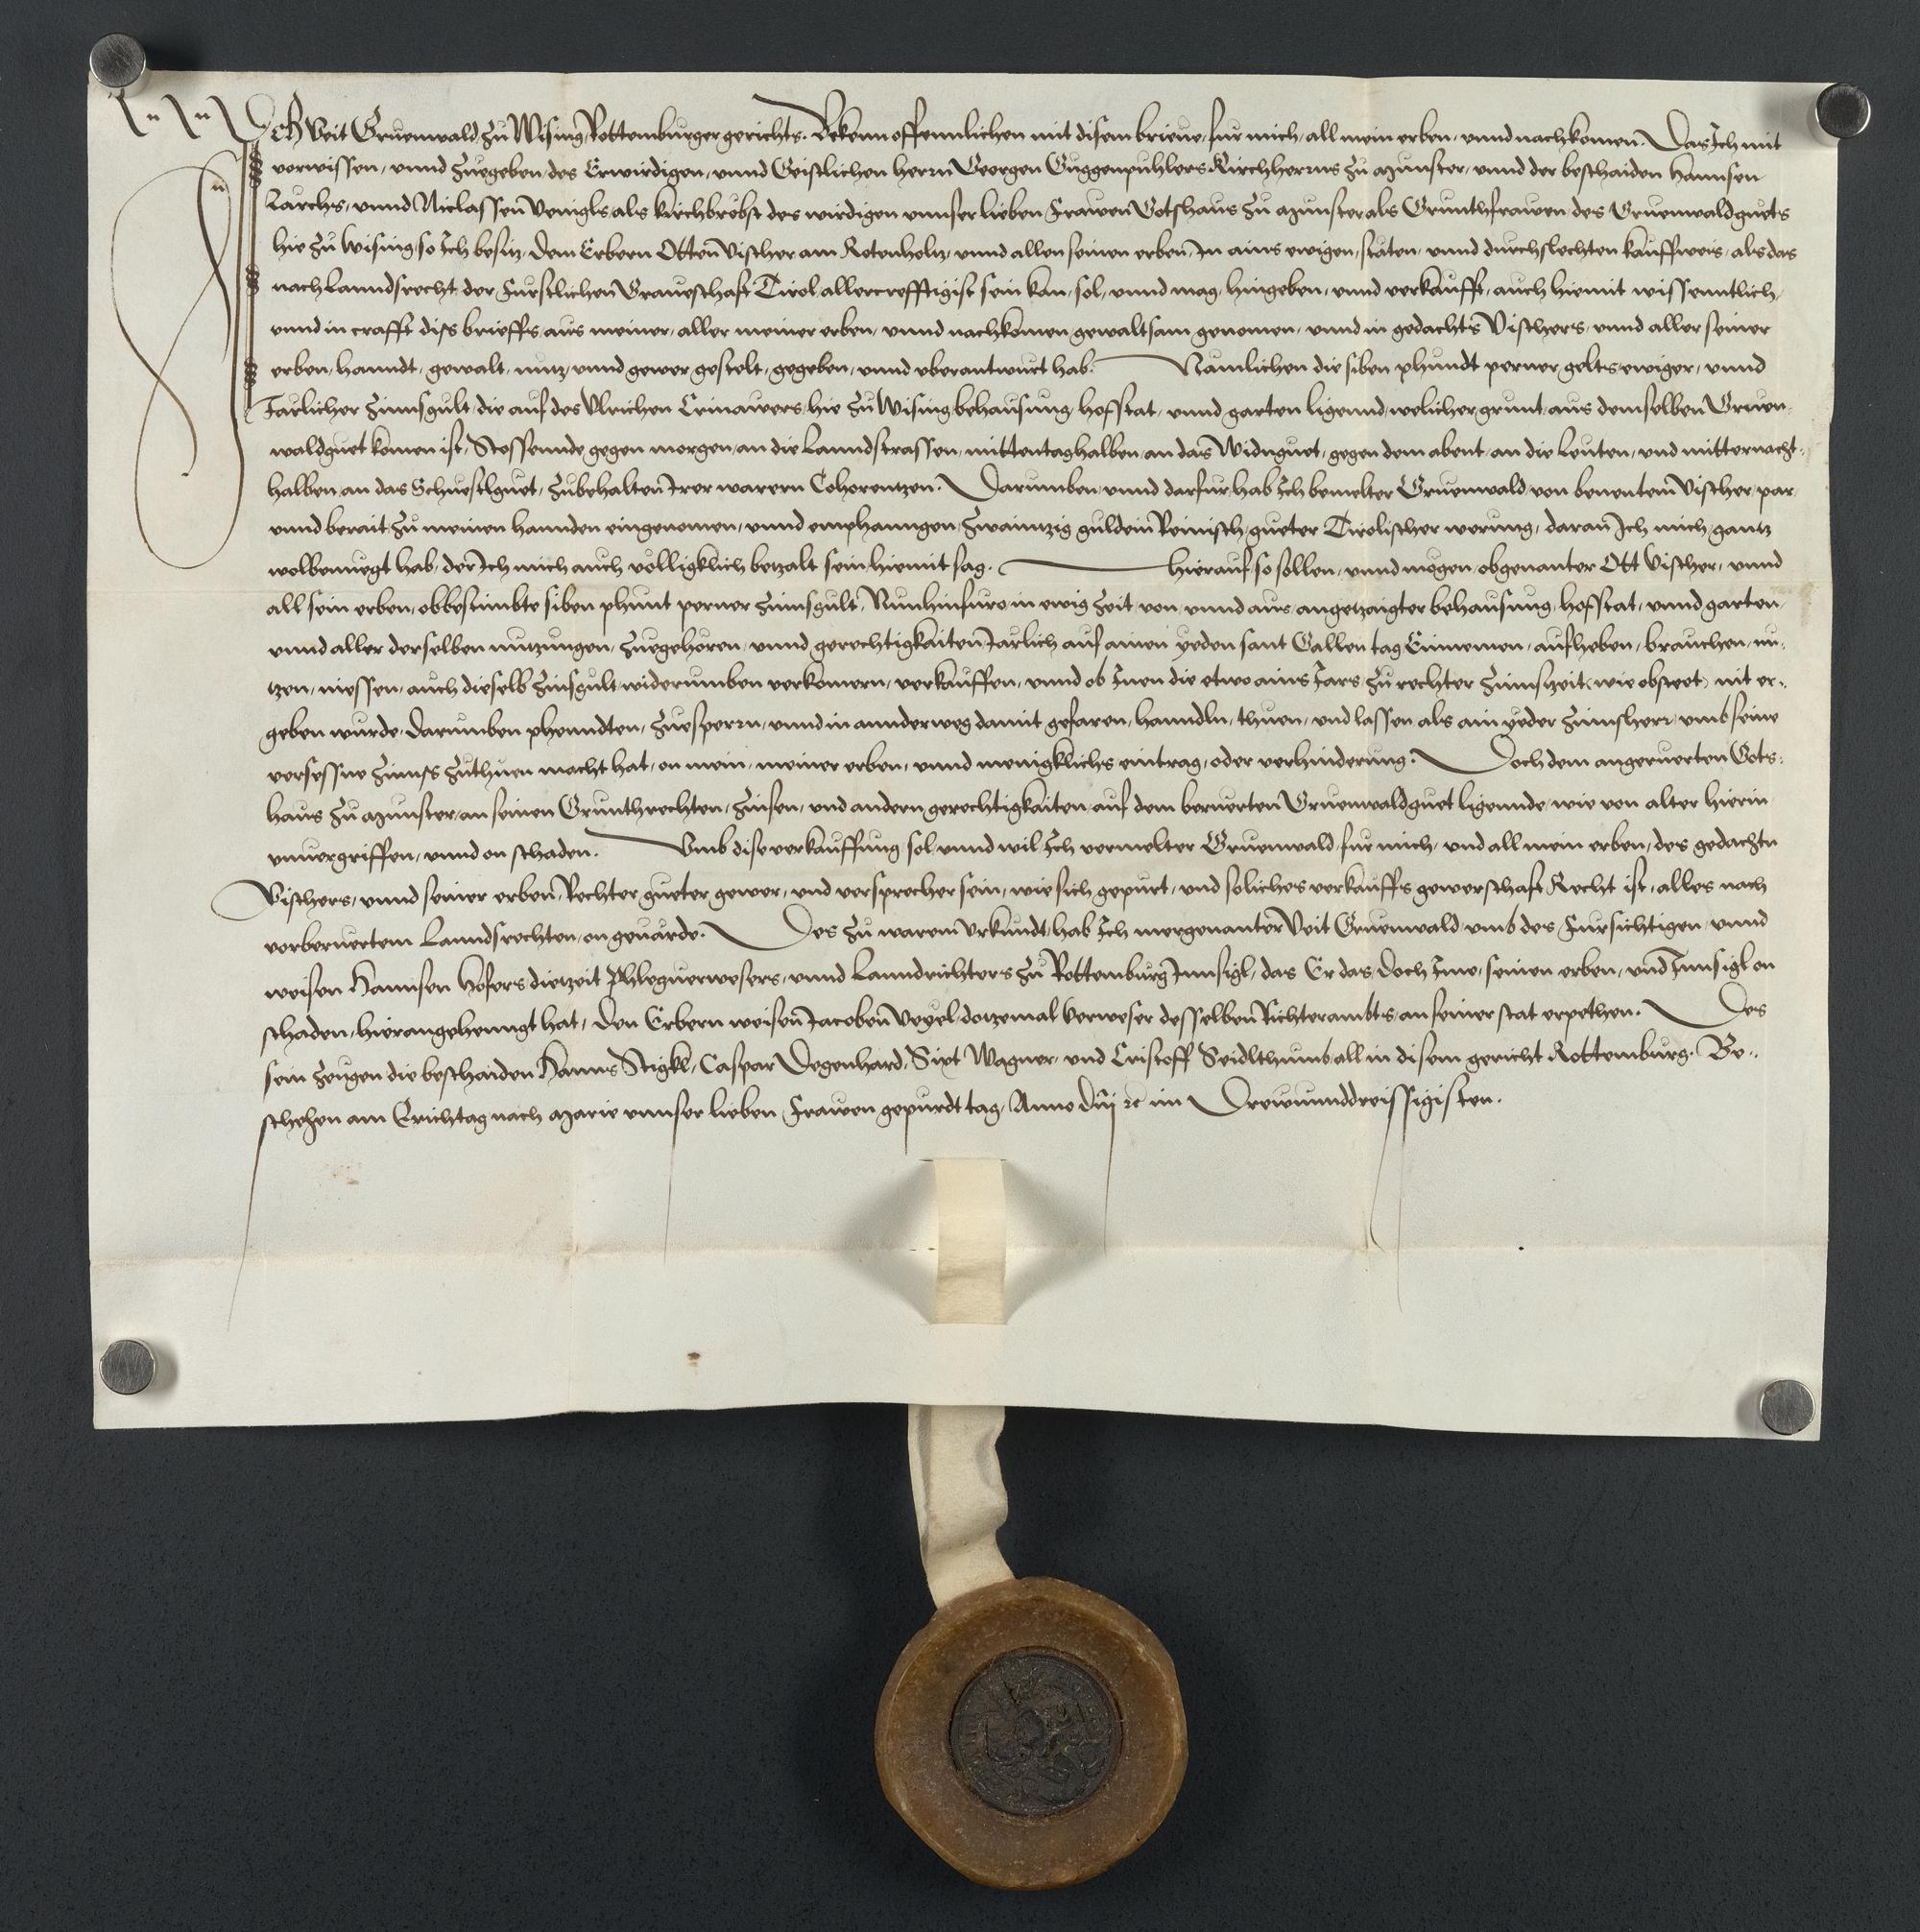 Ich Veit Gruenwald, zu Wising, Rottemburger gerichts. Bekenn offennlichen mit disem brieve, fur mich, all mein erben, vnnd nachkomen. Das Ich mit
vorwissen, vnnd zuegeben, des Erwirdigen, vnnd Geistlichen herrn Georgen Guggenpuhlers Kirchherrns zu Munster, vnnd der beschaiden Hannsen
Larchs, vnnd Niclassen Venigls, als kirchbröbst des wirdigen vnnser lieben Frawen Gotshaus zu Munster als Grunthfrawen des Gruenwaldguets
hie zu Wising, so Ich besitz, dem Erbern Otten Vischer am Rotenholtz, vnnd allen seinen erben, In ains ewigen, stäten, vnnd durchslechten kauffweis, als das
nach Lanndsrecht der Furstlichen Graueschaft Tirol allercrefftigist sein kan, sol, vnnd mag, hingeben, vnnd verkaufft, auch hiemit wissenntlich,
vnnd in crafft diss brieffs, aus meiner, aller meiner erben, vnnd nachkomen gewaltsam genomen, vnnd in gedachts Vischers, vnnd aller seiner
erben, hanndt, gewalt, nutz, vnnd gewer gestelt, gegeben, vnnd vberantwurt hab. Nämlichen die siben phundt perner gelts, ewiger, vnnd
Järlicher Zinnsgult, die auf des Vlrichen Crinawers, hie zu Wising behausung, hofstat, vnnd garten ligennd, welicher grunt, aus demselben Gruen-
waldguet komen ist, Stossennde gegen morgen, an die Lanndstrassen, mittentaghalben, an das Widnguet, gegen dem abent, an die Leuten, vnd mitternacht-
halben, an das Schuestlguet, zubehalten Irer warern Cohorentzen. Darumben, vnnd darfur, hab Ich bemelter Gruenwald, von benentem Vischer, par,
vnnd berait, zu meinen hannden eingenomen, vnnd emphanngen, zwainntzig guldein Reinisch, gueter Tirolischer werung, daran Ich mich, gantz
wolbenuegt hab, der Ich mich auch völligklich betzalt sein, hiemit sag. Hierauf so sollen, vnnd mögen, obgenanter Ott Vischer, vnnd
all sein erben, obbestimbte siben phunt perner Zinnsgult, Nun hinfuro, in ewig zeit, von, vnnd aus, angetzaigter behausung, hofstat, vnnd garten,
vnnd aller derselben nutzungen, zuegehoren, vnnd gerechtigkaiten, Järlich auf ainen yeden sant Gallen tag Einnemen, aufheben, brauchen, nu-
tzen, niessen, auch dieselb Zinsgult, widerumben verkomern, verkauffen, vnnd ob Inen die etwo ains Jars, zu rechter Zinnszeit (wie obsteet) nit er-
geben wurde, darumben phenndten, zuesperrn, vnnd in annder weg damit gefaren, hanndln, thuen, vnd lassen als ain yeder Zinnsherr, vmb seine
versessne Zinnss zuthuen macht hat, on mein, meiner erben, vnnd menigklichs eintrag, oder verhinderung. Doch dem angeruerten Gots-
haus zu Munster, an seinen Grunthrechten, Zinsen, vnd andern gerechtigkaiten, auf dem beruerten Gruenwaldguet ligennde, wie von alter hierin
vnuergriffen, vnnd on schaden. Vmb dise verkauffung sol, vnnd wil Ich vermelter Gruenwald, fur mich, vnd all mein erben, des gedachtn
Vischers, vnnd seiner erben, Rechter gueter gewer, vnd versprecher sein, wie sich gepurt, vnd soliches verkauffs gewerschaft Recht ist, alles nach
vorberuertem Lanndsrechten, on geuärde. Des zu warem Vrkundt, hab Ich mergenanter Veit Gruenwald, vmb des Fursichtigen, vnnd
weisen Hannsen Hofers, dietzeit Phleguerwesers, vnnd Lanndrichters zu Rottemburg Innsigl, das Er das, Doch Ime, seinen erben, vnd Innsigl on
schaden, hieran gehenngt hat, Den Erbern weisen Jacoben Veyel, dotzemal Verweser desselben Richterambts, an seiner stat erpethen. Des
sein zeugen, die beschaiden Hanns Stigkl, Caspar Degenhard, Sixt Wagner, vnd Cristoff Seidlthumb, all in disem gericht Rottemburg. Be-
schehen am Erichtag nach Marie vnnser lieben Frawen gepurdt tag, Anno Dni 2c im Drewunnddreissigisten.